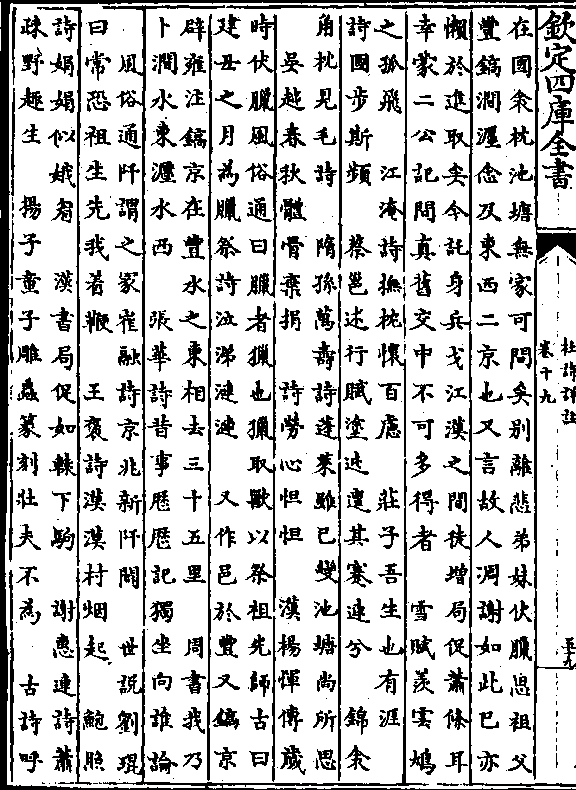 欽定四庫全書
杜詩詳註
卷十九
在國衾枕池塘無家可問矣別離悲弟妹伏臘思祖父
豐鎬澗瀍念及東西二京也又言故人凋謝如此已亦
懶於進取矣今託身兵戈江漢之間徒增局促蕭條耳
幸蒙二公記問真舊交中不可多得者　雪賦羨雲鴆
之孤飛　江淹詩撫枕懷百慮　莊子吾生也有涯
詩國步斯頻　蔡邕述行賦塗迍邅其蹇連兮　錦衾
角枕見毛詩　隋孫萬壽詩蓬萊雖已變池塘尚所思
吳越春秋體骨棄捐　詩勞心怛怛　漢楊惲傳歲
時伏臘風俗通曰臘者獵也獵取獸以祭祖先師古曰
建丑之月為臘祭詩泣涕漣漣　又作邑於豐又鎬京
辟雍注鎬京在豐水之東相去三十五里　周書我乃
卜澗水東瀍水西　張華詩昔事歷歷記獨坐向誰論
風俗通阡謂之冢崔融詩京兆新阡闢　世說劉琨
曰常恐祖生先我着鞭　王褒詩漠漠村烟起　鮑照
詩娟娟似娥眉　漢書局促如轅下駒　謝惠連詩蕭
疎野趣生　揚子童子雕蟲篆刻壯夫不為　古詩呼